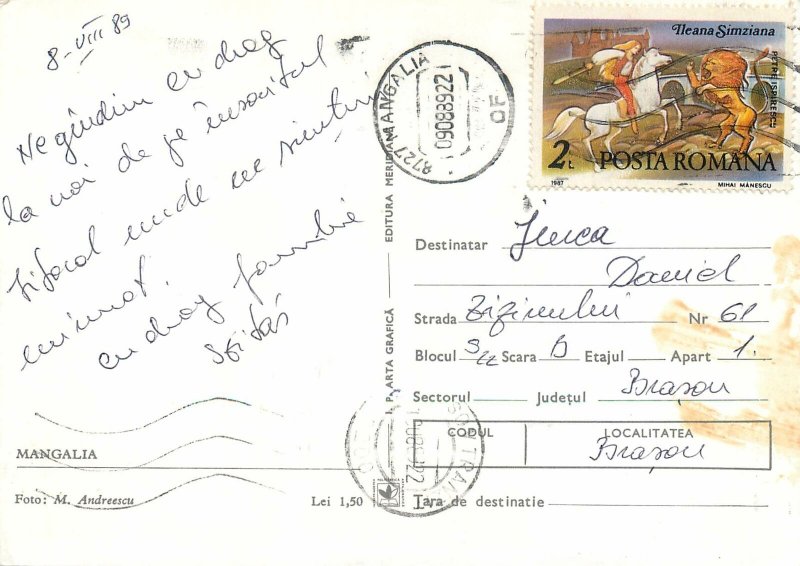 8-VIII 89
Ne gîndim cu drag
la voi de pe însoritul
litoral unde ne simțim
minunat.
cu drag familie
MANGALIA
Foto: M. Andreescu
Lei 1,50
I. P. ARTA GRAFICĂ — EDITURA MERIDIANE
8727 MANGALIA
09088922
OF
Ileana Simziana
PETRE ISPIRESCU
2L POSTA ROMANA
1987
MIHAI MĂNESCU
Destinatar Jinca
Daniel
Strada Zizinului Nr 61
Blocul Scara B Etajul Apart 1.
Sectorul Județul Brasov
CODUL LOCALITATEA
Brasov
Țara de destinatie